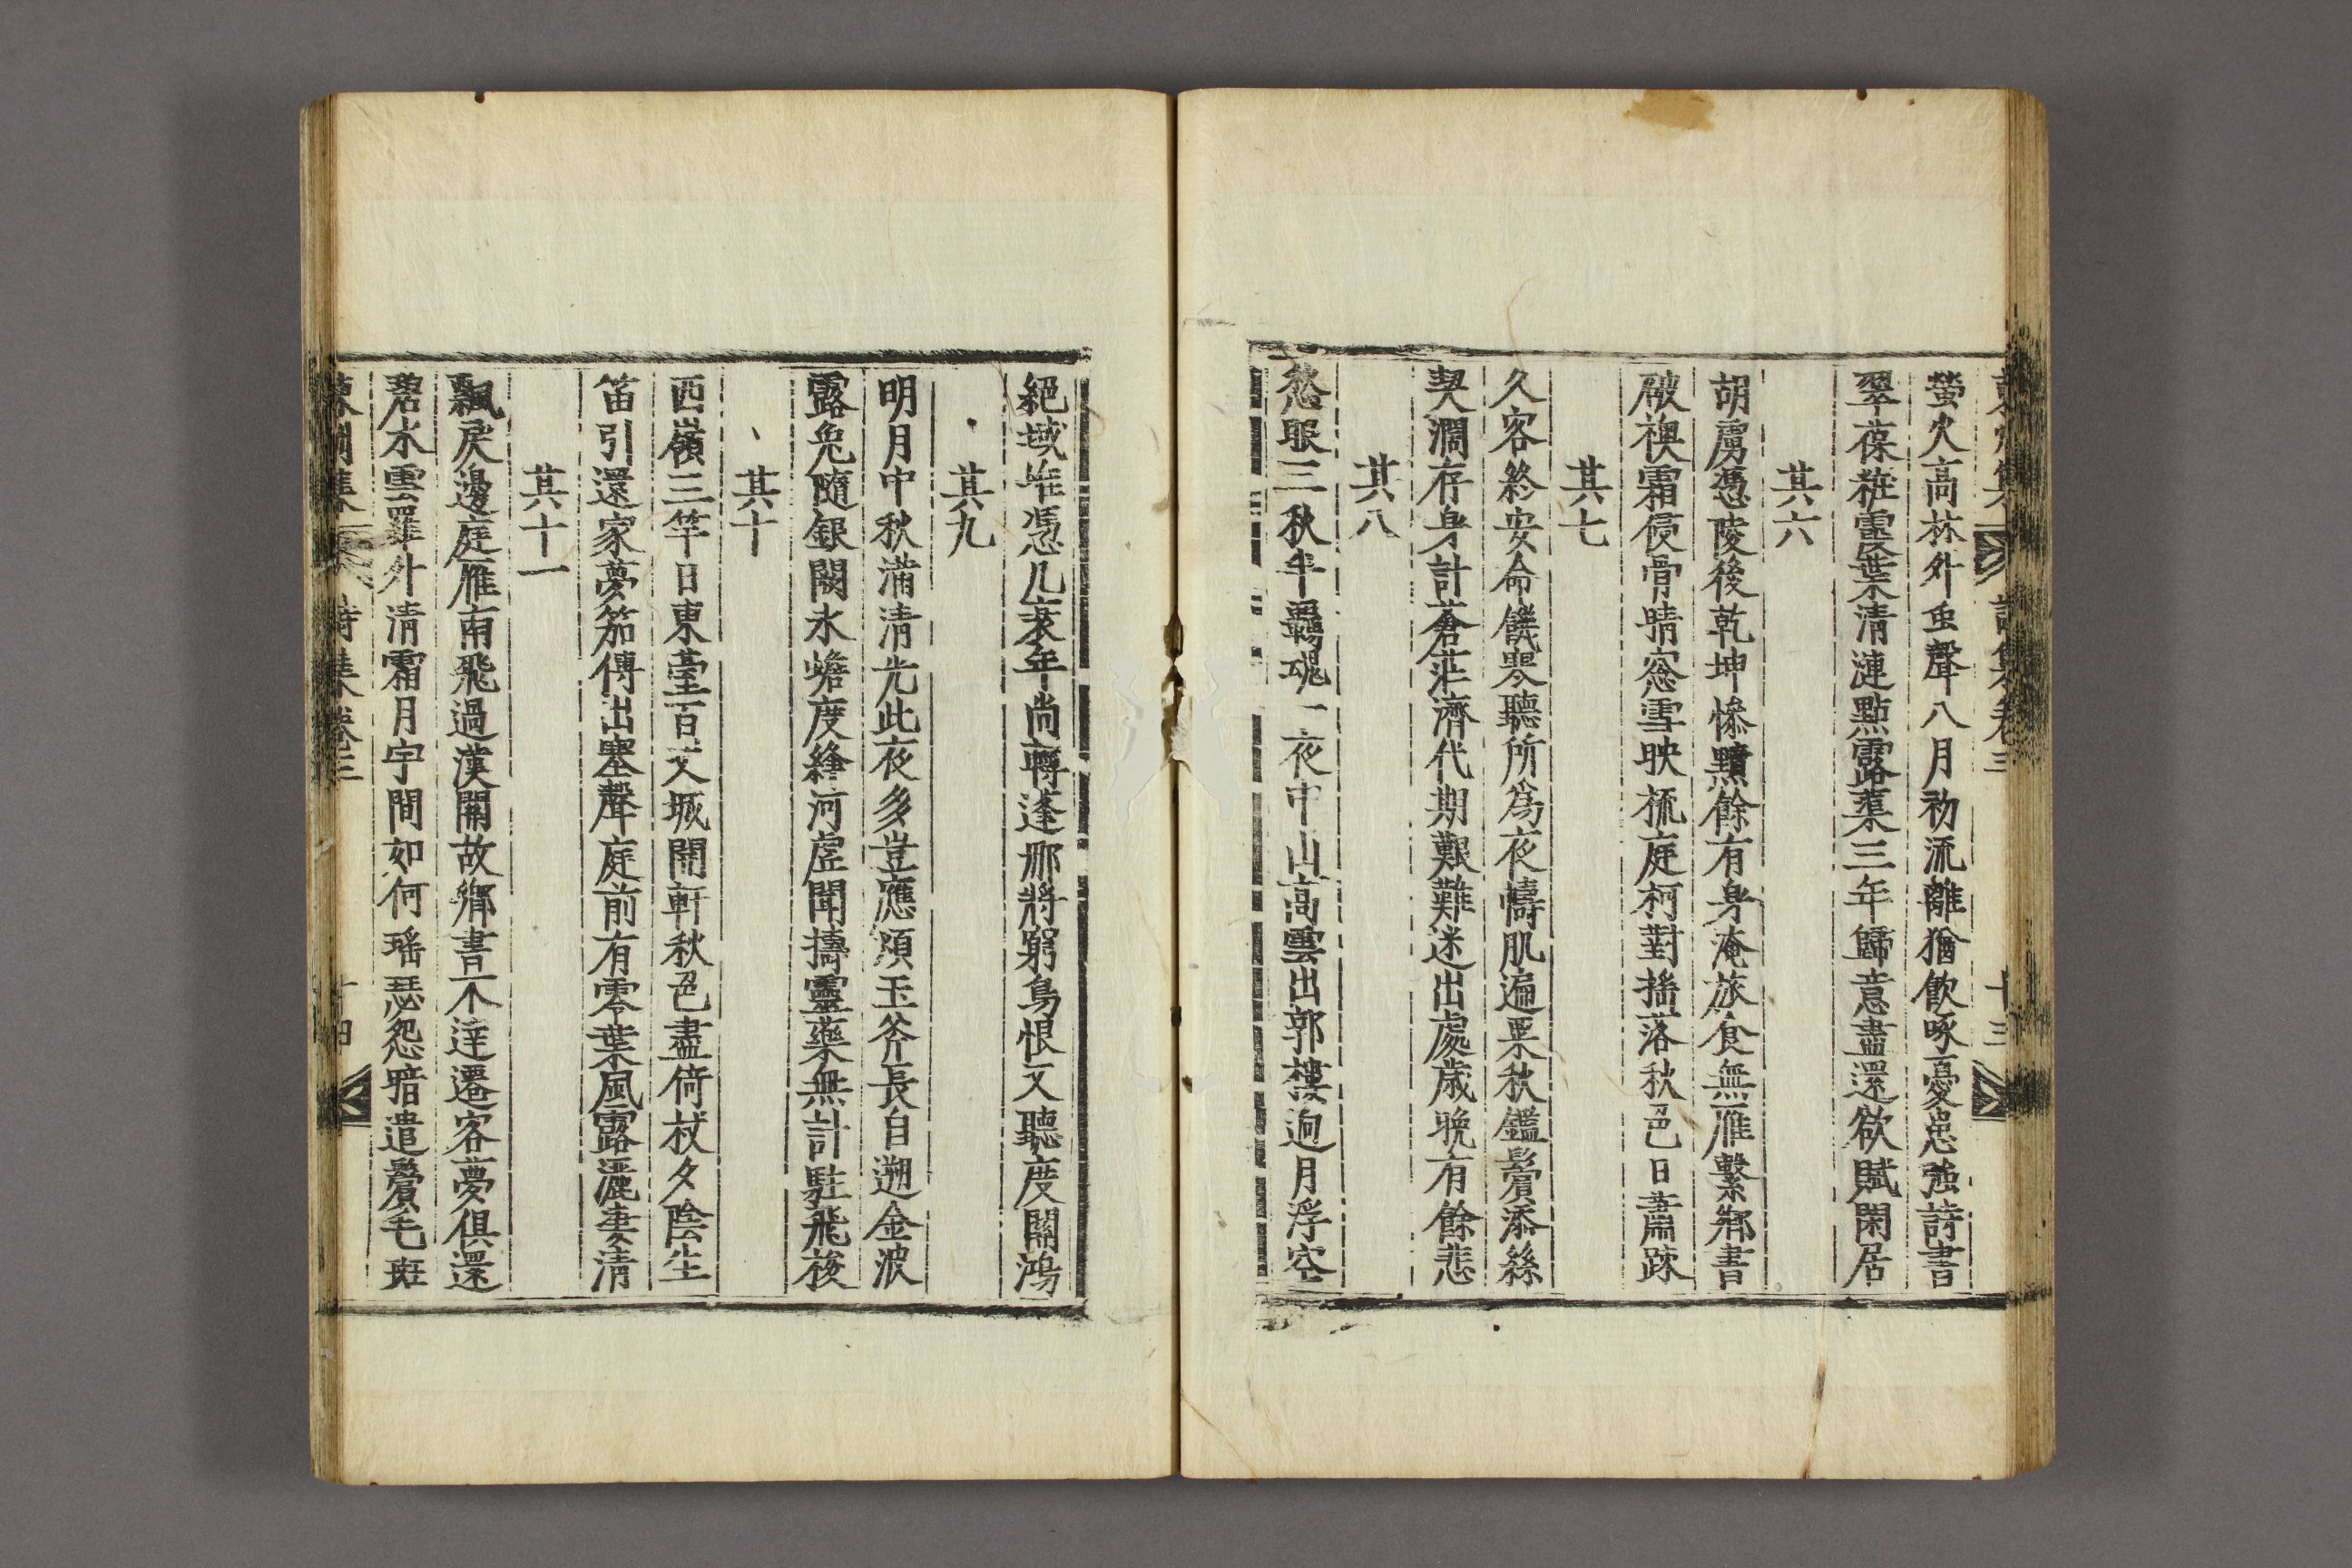 螢火高林外虫聲八月初流離猶飮啄憂思強詩書
翠葆粧雲葉清漣點露蕖三年歸意盡還欲賦閑居
其六
胡虜憑陵後乾坤慘黷餘有身淹旅食無雁繫鄕書
破襖霜侵骨晴窓雪映梳庭柯對搖落秋色日蕭踈
其七
久客終安命饑寒聽所爲夜幬肌遍粟秋鑑鬢添絲
契濶存身計蒼茫濟代期艱難迷出處歲晩有餘悲
其八
愁眼三秋半羈魂一夜中山高雲出郭樓逈月浮空
絕域唯憑几衰年尙轉蓬那將窮鳥恨又聽度關鴻
其九
明月中秋滿清光此夜多豈應煩玉斧長自遡金波
露兔隨銀闕氷蟾度絳河虛聞擣靈藥無計駐飛梭
其十
西嶺三竿日東臺百丈城開軒秋色盡倚杖夕陰生
笛引還家夢笳傳出塞聲庭前有零葉風露洒凄清
其十一
飄戾邊庭雁南飛過漢關故鄕書不達遷客夢俱還
碧水雲羅外清霜月宇間如何瑤瑟怨暗遣鬢毛斑
詩集卷三